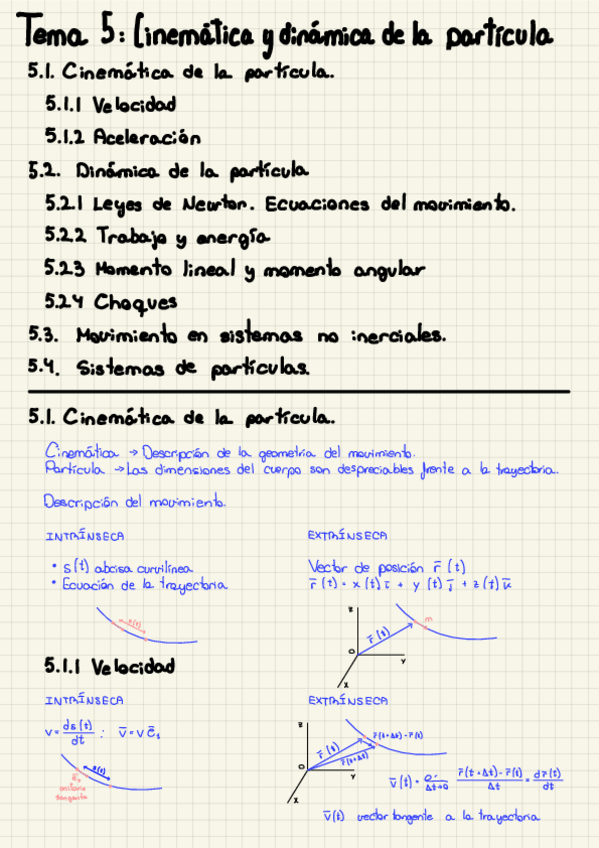 Tema 5: Cinemática y dinámica de la partícula
5.1. Cinemática de la partícula.
5.1.1 Velocidad
5.1.2 Aceleración
5.2. Dinámica de la partícula
5.2.1 Leyes de Newton. Ecuaciones del movimiento.
5.2.2 Trabajo y energía
5.2.3 Momento lineal y momento angular
5.2.4 Choques
5.3. Movimiento en sistemas no inerciales.
5.4. Sistemas de partículas.
5.1. Cinemática de la partícula.
Cinemática → Descripción de la geometría del movimiento.
Partícula → Las dimensiones del cuerpo son despreciables frente a la trayectoria.
Descripción del movimiento.
INTRÍNSECA
• s(t) abcisa curvilínea
• Ecuación de la trayectoria
s(t)
EXTRÍNSECA
Vector de posición r̅(t)
r̅(t) = x(t) i̅ + y(t) j̅ + z(t) k̅
z
m
r̅(t)
O
y
x
5.1.1 Velocidad
INTRÍNSECA
v = ds(t)/dt : v̅ = v e̅t
s(t)
e̅t
unitario
tangente
EXTRÍNSECA
z
r̅(t+Δt) - r̅(t)
r̅(t)
r̅(t+Δt)
O
y
x
v̅(t) = Δt→0 r̅(t+Δt) - r̅(t)/Δt = dr̅(t)/dt
v̅(t) vector tangente a la trayectoria